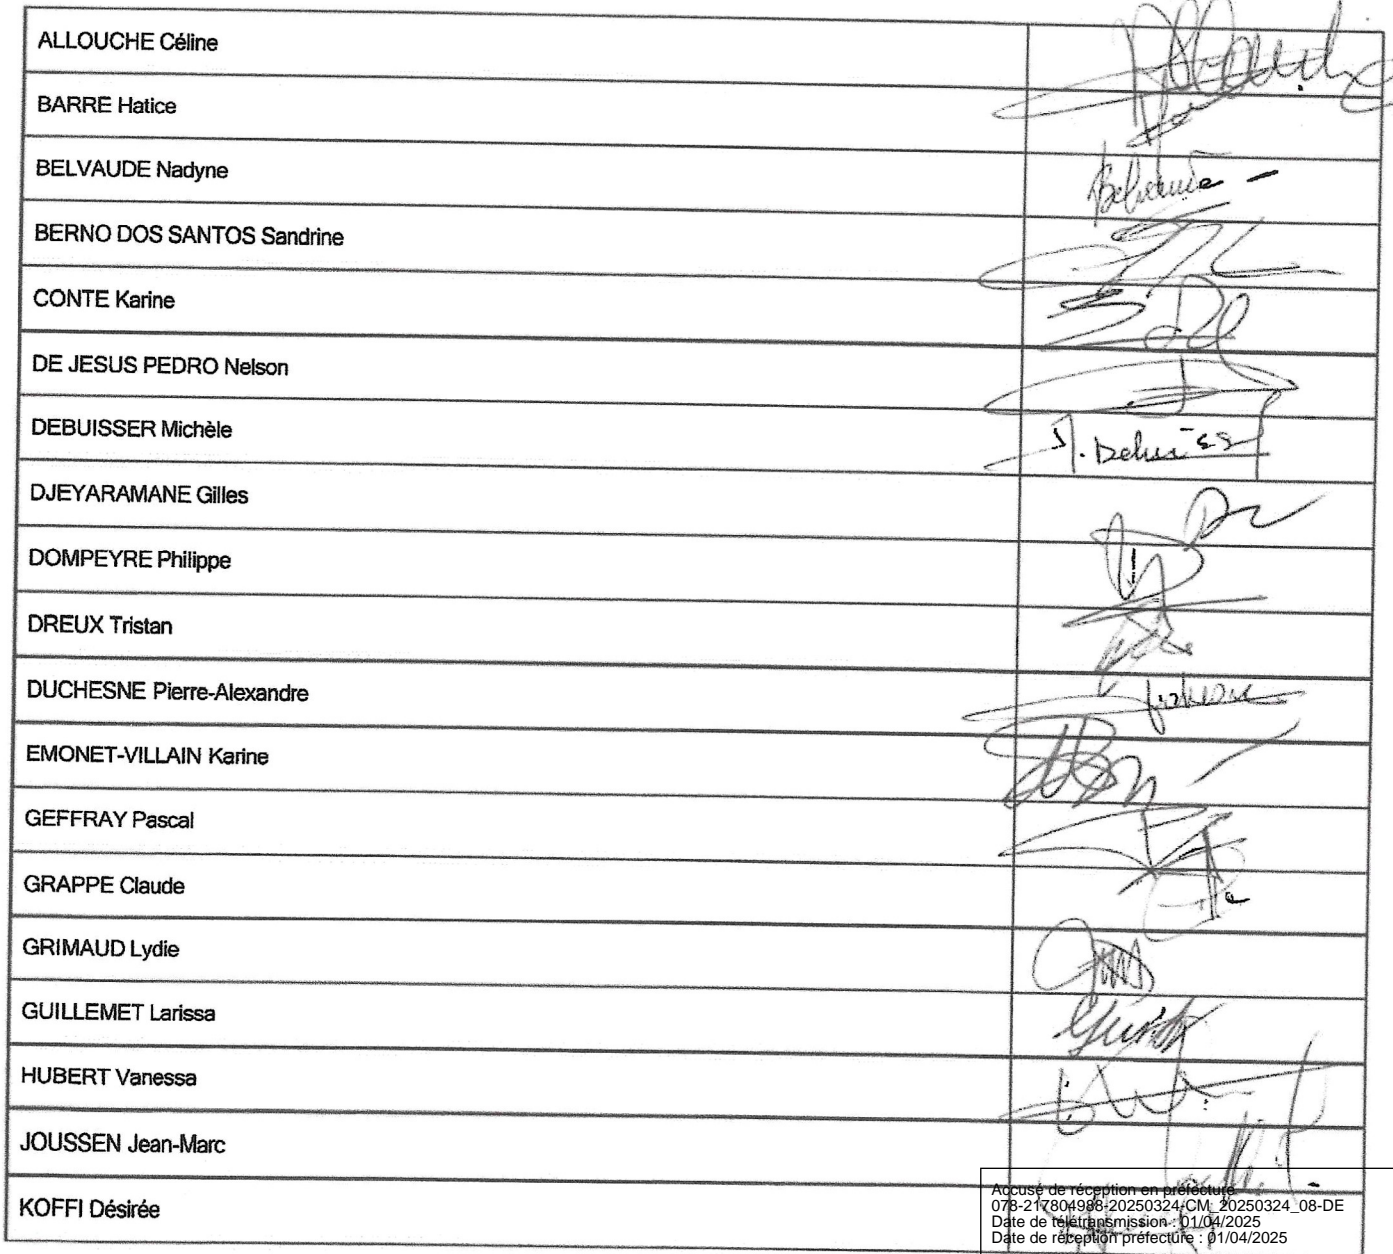 ALLOUCHE Céline
BARRE Hatice
BELVAUDE Nadyne
BERNO DOS SANTOS Sandrine
CONTE Karine
DE JESUS PEDRO Nelson
DEBUISSER Michèle
DJEYARAMANE Gilles
DOMPEYRE Philippe
DREUX Tristan
DUCHESNE Pierre-Alexandre
EMONET-VILLAIN Karine
GEFFRAY Pascal
GRAPPE Claude
GRIMAUD Lydie
GUILLEMET Larissa
HUBERT Vanessa
JOUSSEN Jean-Marc
KOFFI Désirée
Accusé de réception en préfecture
078-217804988-20250324-CM_20250324_08-DE
Date de télétransmission : 01/04/2025
Date de réception préfecture : 01/04/2025